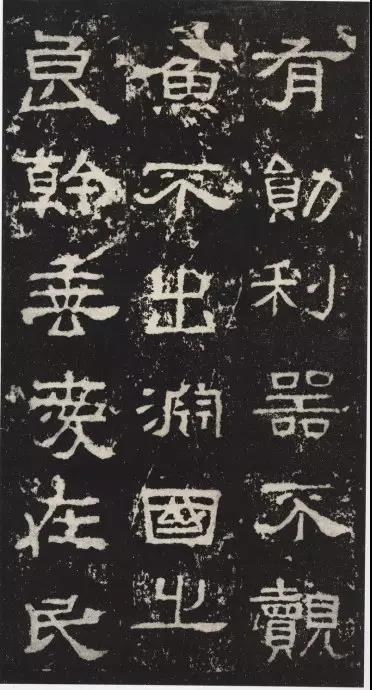 有勛利器不覿
魚不出淵國之
良幹垂愛在民